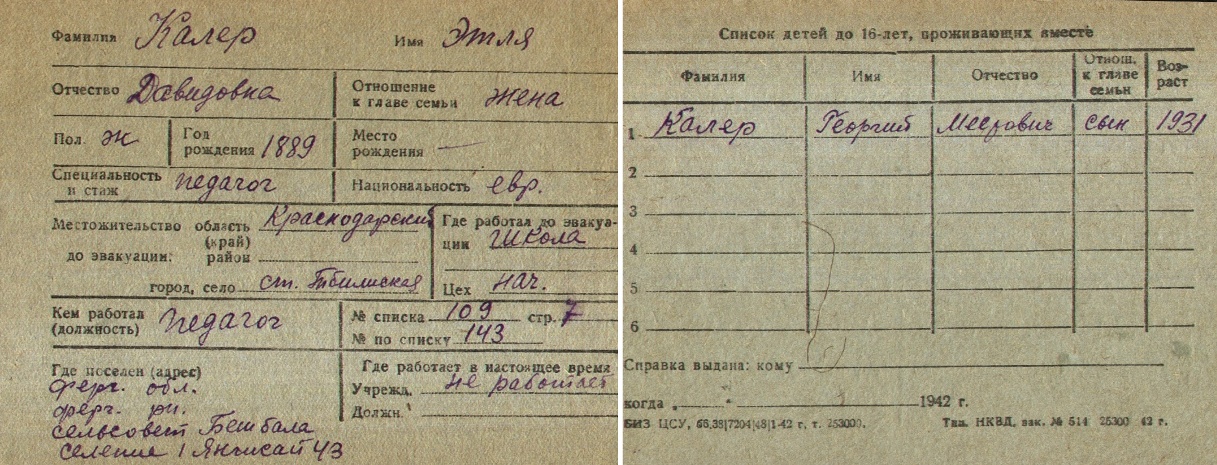 Фамилия Калер Имя Этля
Отчество Давидовна Отношение к главе семьи жена
Пол ж Год рождения 1889 Место рождения —
Специальность и стаж педагог Национальность евр.
Местожительство до эвакуации: область (край) Краснодарский
район
город, село ст. Тбилисская
Где работал до эвакуации Школа
Цех нач.
Кем работал (должность) педагог
№ списка 109 стр. 7
№ по списку 143
Где поселен (адрес)
ферг. обл.
ферг. рн.
сельсовет Бешбала
селение 1 Янгисай 43
Где работает в настоящее время
Учрежд. не работает
Должн.
Список детей до 16-лет, проживающих вместе
Фамилия Имя Отчество Отнош. к главе семьи Возраст
1 Калер Георгий Меерович сын 1931
2
3
4
5
6
Справка выдана: кому
когда „ " 1942 г.
БИЗ ЦСУ, 1-42 г. т. 253000. Тип. НКВД, зак. № 514 25300 42 г.